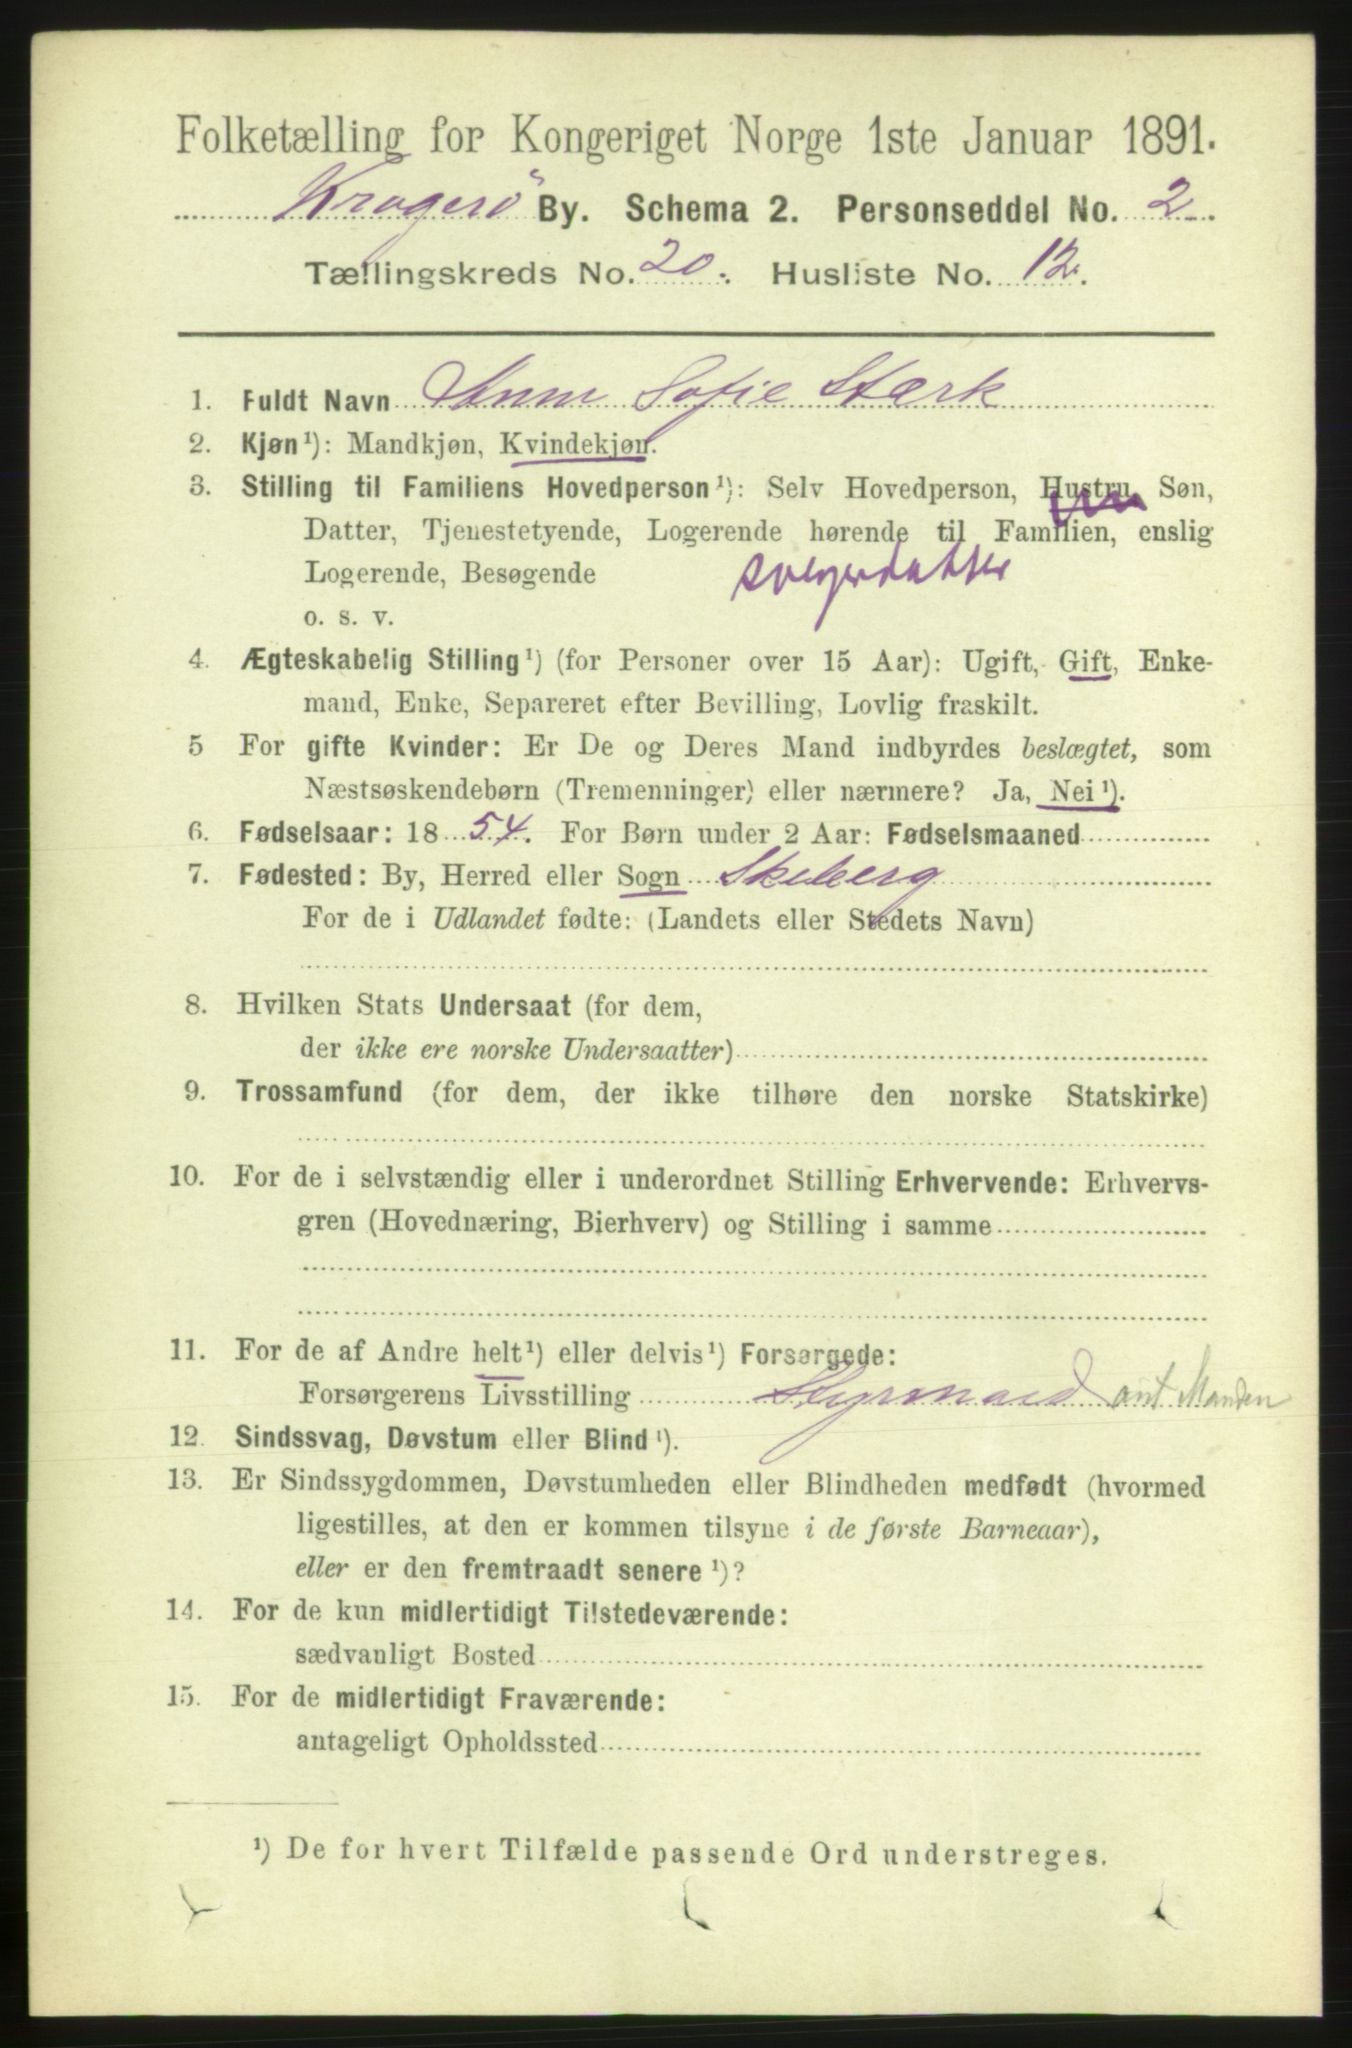 Folketælling for Kongeriget Norge 1ste Januar 1891.
Kragerö By. Schema 2. Personseddel No. 2.
Tællingskreds No. 20. Husliste No. 12.
1. Fuldt Navn Anne Sofie Stærk
2. Kjøn¹): Mandkjøn, Kvindekjøn.
3. Stilling til Familiens Hovedperson¹): Selv Hovedperson, Hustru, Søn,
Datter, Tjenestetyende, Logerende hørende til Familien, enslig
Logerende, Besøgende svigerdatter
o. s. v.
4. Ægteskabelig Stilling¹) (for Personer over 15 Aar): Ugift, Gift, Enke-
mand, Enke, Separeret efter Bevilling, Lovlig fraskilt.
5 For gifte Kvinder: Er De og Deres Mand indbyrdes beslægtet, som
Næstsøskendebørn (Tremenninger) eller nærmere? Ja, Nei¹).
6. Fødselsaar: 1854. For Børn under 2 Aar: Fødselsmaaned
7. Fødested: By, Herred eller Sogn Skeberg
For de i Udlandet fødte: (Landets eller Stedets Navn)
8. Hvilken Stats Undersaat (for dem,
der ikke ere norske Undersaatter)
9. Trossamfund (for dem, der ikke tilhøre den norske Statskirke)
10. For de i selvstændig eller i underordnet Stilling Erhvervende: Erhvervs-
gren (Hovednæring, Bierhverv) og Stilling i samme
11. For de af Andre helt¹) eller delvis¹) Forsørgede:
Forsørgerens Livsstilling Styrmand ant. Manden
12. Sindssvag, Døvstum eller Blind¹).
13. Er Sindssygdommen, Døvstumheden eller Blindheden medfødt (hvormed
ligestilles, at den er kommen tilsyne i de første Barneaar),
eller er den fremtraadt senere¹)?
14. For de kun midlertidigt Tilstedeværende:
sædvanligt Bosted
15. For de midlertidigt Fraværende:
antageligt Opholdssted
¹) De for hvert Tilfælde passende Ord understreges.